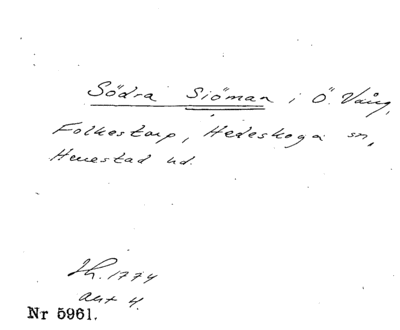 Södra Siöman i Ö. Vång,
Folkestorp, Hedeskoga sn,
Herrestad hd.
Lh. 1774
akt 4.
Nr 5961.